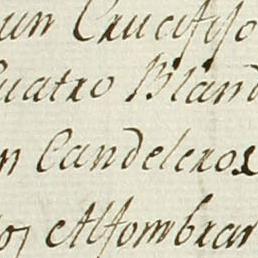 un Crucifiso
uatro Bland
n Candeleros
os Alfombrar